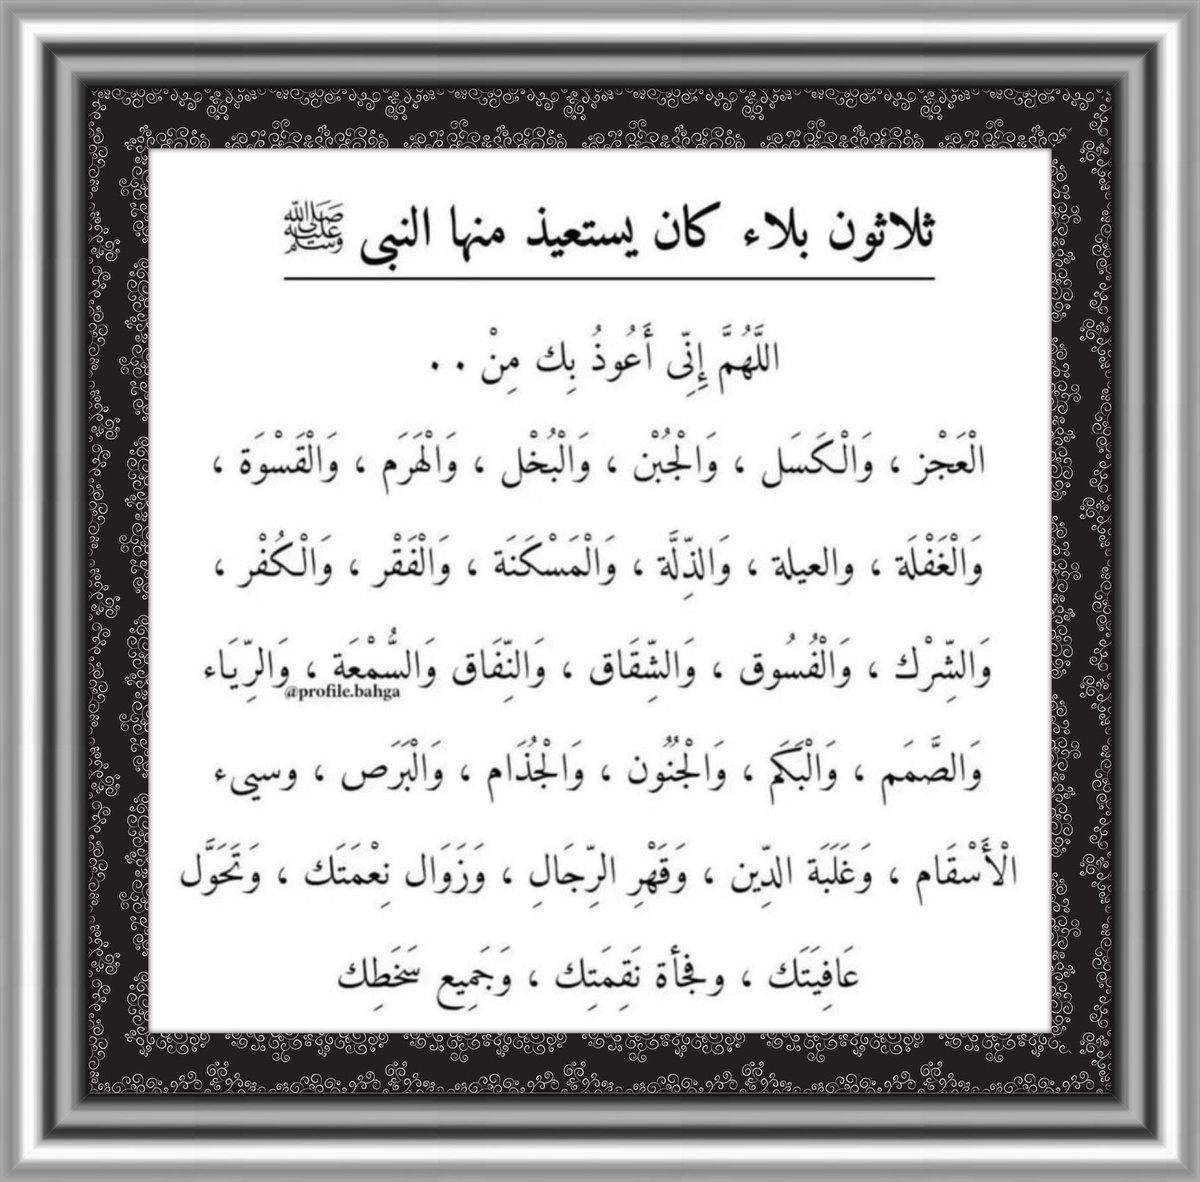 ثلاثون بلاء كان يستعيذ منها النبى ﷺ
اللَّهُمَّ إِنِّى أَعُوذُ بِك مِنْ . .
الْعَجْز ، وَالْكَسَل ، وَالْجُبْن ، وَالْبُخْل ، وَالْهَرَم ، وَالْقَسْوَة ،
وَالْغَفْلَة ، والعيلة ، وَالذِّلَّة ، وَالْمَسْكَنَة ، وَالْفَقْر ، وَالْكُفْر ،
وَالشِّرْك ، وَالْفُسُوق ، وَالشِّقَاق ، وَالنِّفَاق وَالسُّمْعَة ، وَالرِّيَاء
@profile.bahga
وَالصَّمَم ، وَالْبَكَم ، وَالْجُنُون ، وَالْجُذَام ، وَالْبَرَص ، وسيىء
الْأَسْقَام ، وَغَلَبَة الدِّين ، وَقَهْرِ الرِّجَالِ ، وَزَوَال نِعْمَتَك ، وَتَحَوَّل
عَافِيَتَك ، وفجأة نَقِمَتِك ، وَجَمِيع سَخَطِك